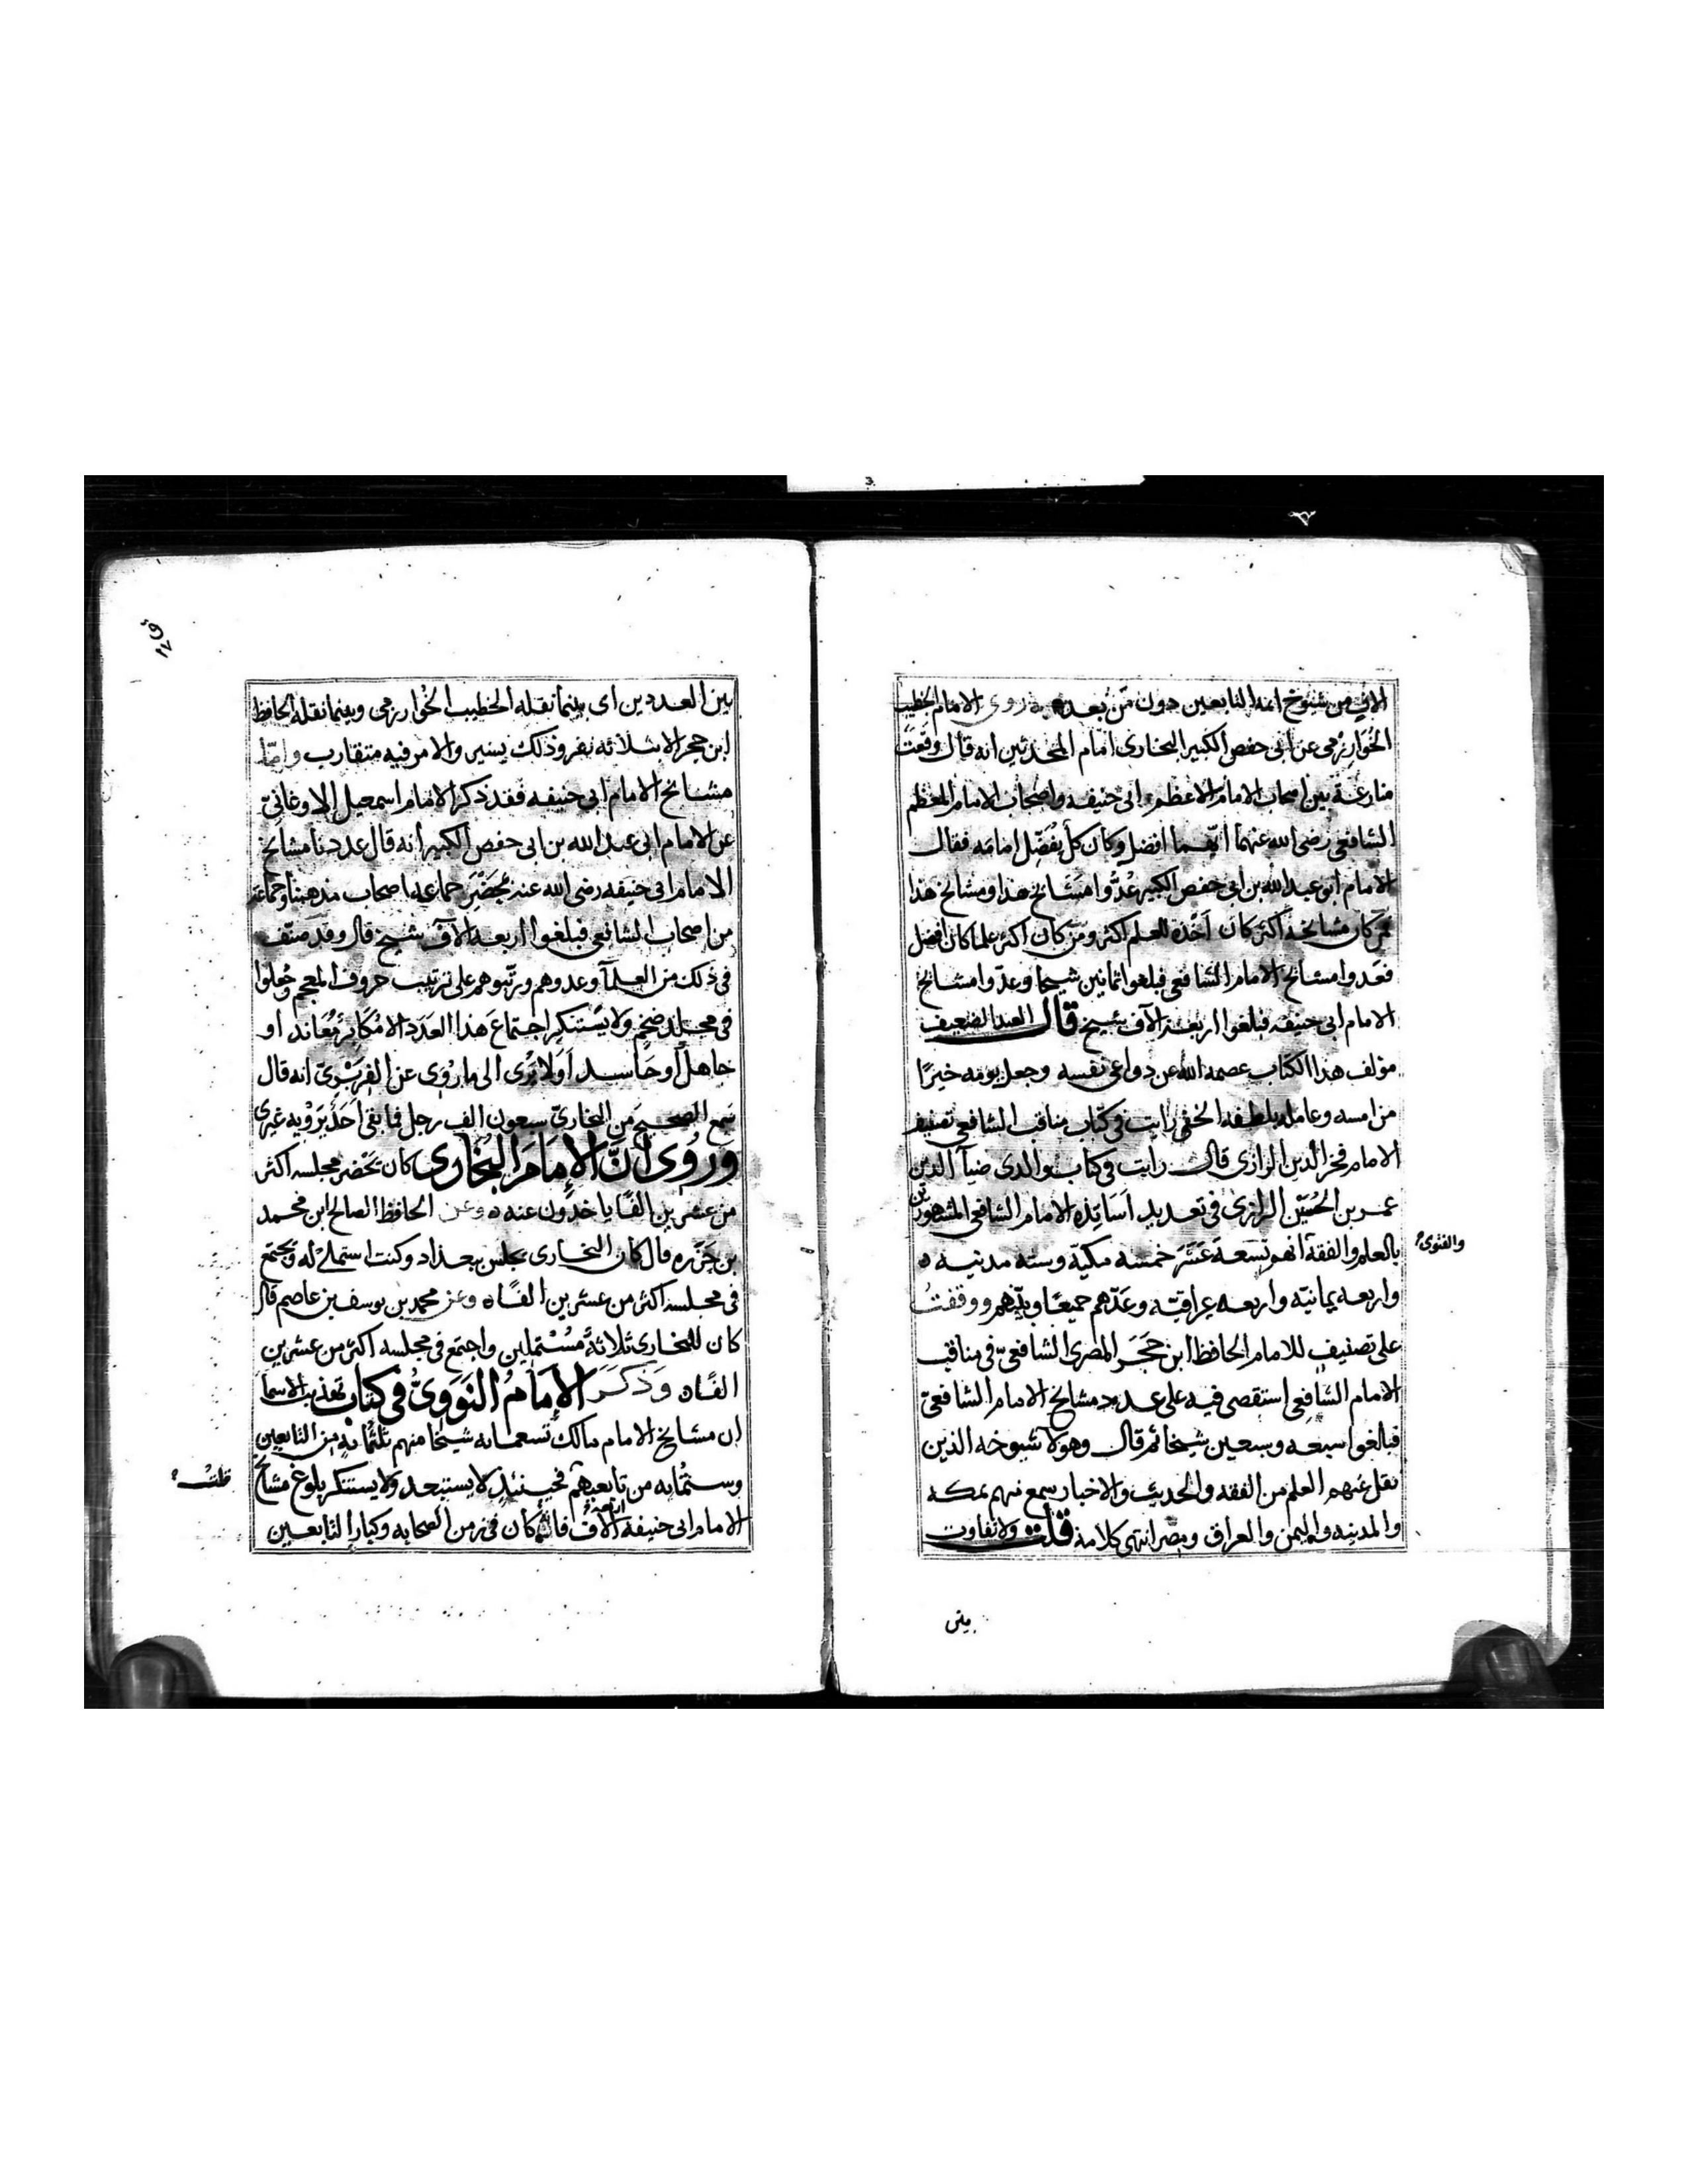 الاف من شيوخ ائمه التابعين دون من بعدهم روى الامام الخطيب
الخوارزمى عن ابى حفص الكبير البخارى امام المحدثين انه قال وقعت
منازعة بين اصحاب الامام الاعظم ابى حنيفه واصحاب الامام المعظم
الشافعى رضى الله عنهما ايهما افضل وكان كل يُفَضّل امامه فقال
الامام ابو عبد الله بن ابى حفص الكبير عُدُّوا مَشَايخ هذا ومشايخ هذا
فمن كان مشايخه اكثر كان اَخْذه للعلم اكثر ومن كان اكثر علما كان افضل
فعدوا مشايخ الامام الشافعى فبلغوا ثمانين شيخا وعدّوا مشايخ
الامام ابى حنيفه فبلغوا اربعة الآف شيخ قال العبد الضعيف
مؤلف هذا الكتاب عصمه الله عن دواعى نفسه وجعل يومه خيرًا
من امسه وعامله بلطفه الخفى رايت فى كتاب مناقب الشافعى تصنيف
الامام فخر الدين الرازى قال رايت فى كتاب والدى ضيآ الدين
عمر بن الحُسَين الرازى فى تعديد اَسَاتِذه الامام الشافعى المشهورين
بالعلم والفقه انهم تسعة عَشَرَ خمسه مكيّه وسته مدنيه ه
والفتوى
واربعه يمانيّه واربعه عِراقيّه وعَدّهم جميعًا وبيّنهم ووقفتُ
على تصنيف للامام الحافظ ابن حَجَر المصرى الشافعىّ فى مناقب
الامام الشافعى استقصى فيه على عدد مشايخ الامام الشافعىّ
فبالغوا سبعه وسبعين شيخا ثم قال وهولا شيوخه الذين
نقل عنهم العلم من الفقه والحديث والاخبار سمع منهم بمكه
والمدينه واليمن والعراق وبصر انتهى كلامه قلت ولا تفاوت
بين
بين العددين اى بينما نقله الخطيب الخوارزمى وبينما نقله الحافظ
ابن حجر الا بثلاثه نفر وذلك يسير والامر فيه متقارب وامّا
مشايخ الامام ابى حنيفه فقد ذكر الامام اسمعيل الاوغانى
عن الامام ابى عبد الله بن ابى حفص الكبير انه قال عددنا مشايخ
الامام ابى حنيفه رضى الله عنه بمحضر جماعه اصحاب مذهبنا وجماعة
من اصحاب الشافعى فبلغوا اربعه الآف شيخ قال وقد صنّف
فى ذلك من العلمآ وعدوهم ورتّبوهم على ترتيب حروف المعجم وجُعلوا
فى مجلد ضخم ولا يستنكر اجتماعَ هذا العَدَد الا مُكَابِر مُعَاند او
جاهل او حَاسد اَوَلا تَرى الى ما رُوى عن الفربرى انه قال
سمع الصحيح من البخارى سبعون الف رجل فما بقى اَحَدٌ يَرْويه غيرى
وَرُوى اَنَّ الإمَامَ البُخَارى كان يَحْضر مجلسه اكثر
من عشرين الفًا ياخذون عنه ه وعن الحافظ الصالح ابن محمد
بن جَزَره قال كان البخارى يجلس ببغداد وكنت استملى له ويجتمع
فى مجلسه اكثر من عشرين الفًا ه وعن محمد بن يوسف بن عاصم قال
كان للبخارى ثلاثةُ مُسْتَملين واجتمع فى مجلسه اكثر من عشرين
الفًا ه وذَكَرَ الإمَامُ النَّوَوىُّ فى كتاب تهذيب الاسما
ان مشايخ الامام مالك تسعمايه شيخا منهم ثلثمائه من التابعين
وستمايه من تابعيهم فحينئذ لا يستبعد ولا يستنكر بلوغ مشايخ
الامام ابى حنيفه اربعة الآف فانه كان فى زمن الصحابه وكبار التابعين